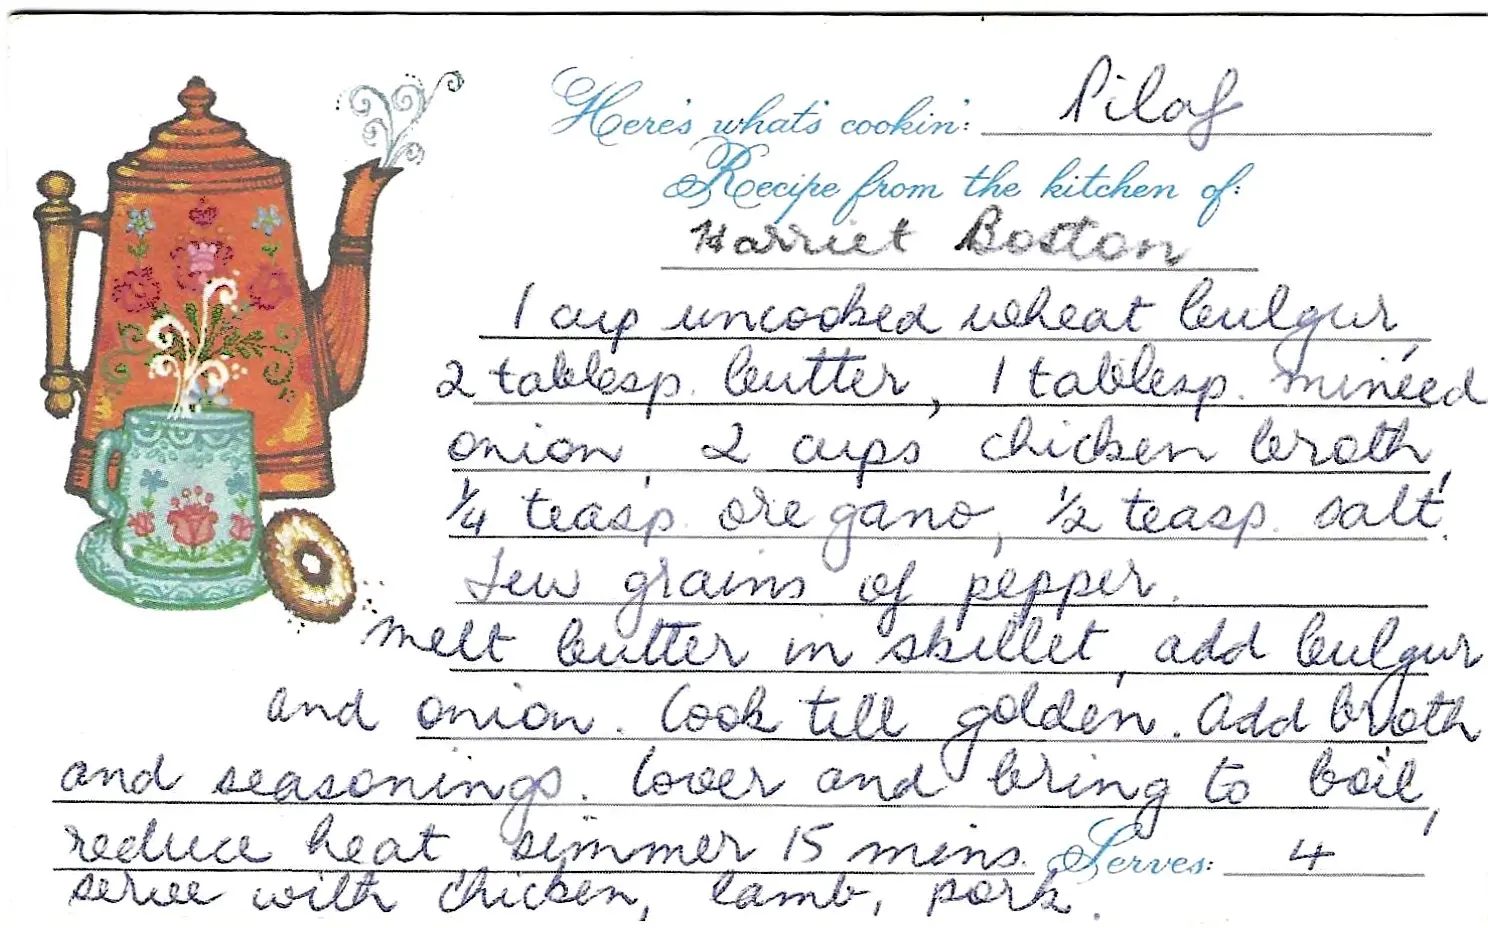 Here's what's cookin': Pilaf
Recipe from the kitchen of:
Harriet Boston
1 cup uncooked wheat bulgur,
2 tablesp. butter, 1 tablesp. minced
onion, 2 cups chicken broth,
1/4 teasp. oregano, 1/2 teasp. salt.
Few grains of pepper.
Melt butter in skillet, add bulgur
and onion. Cook till golden. Add broth
and seasonings. Cover and bring to boil,
reduce heat simmer 15 mins. Serves: 4
serve with chicken, lamb, pork.